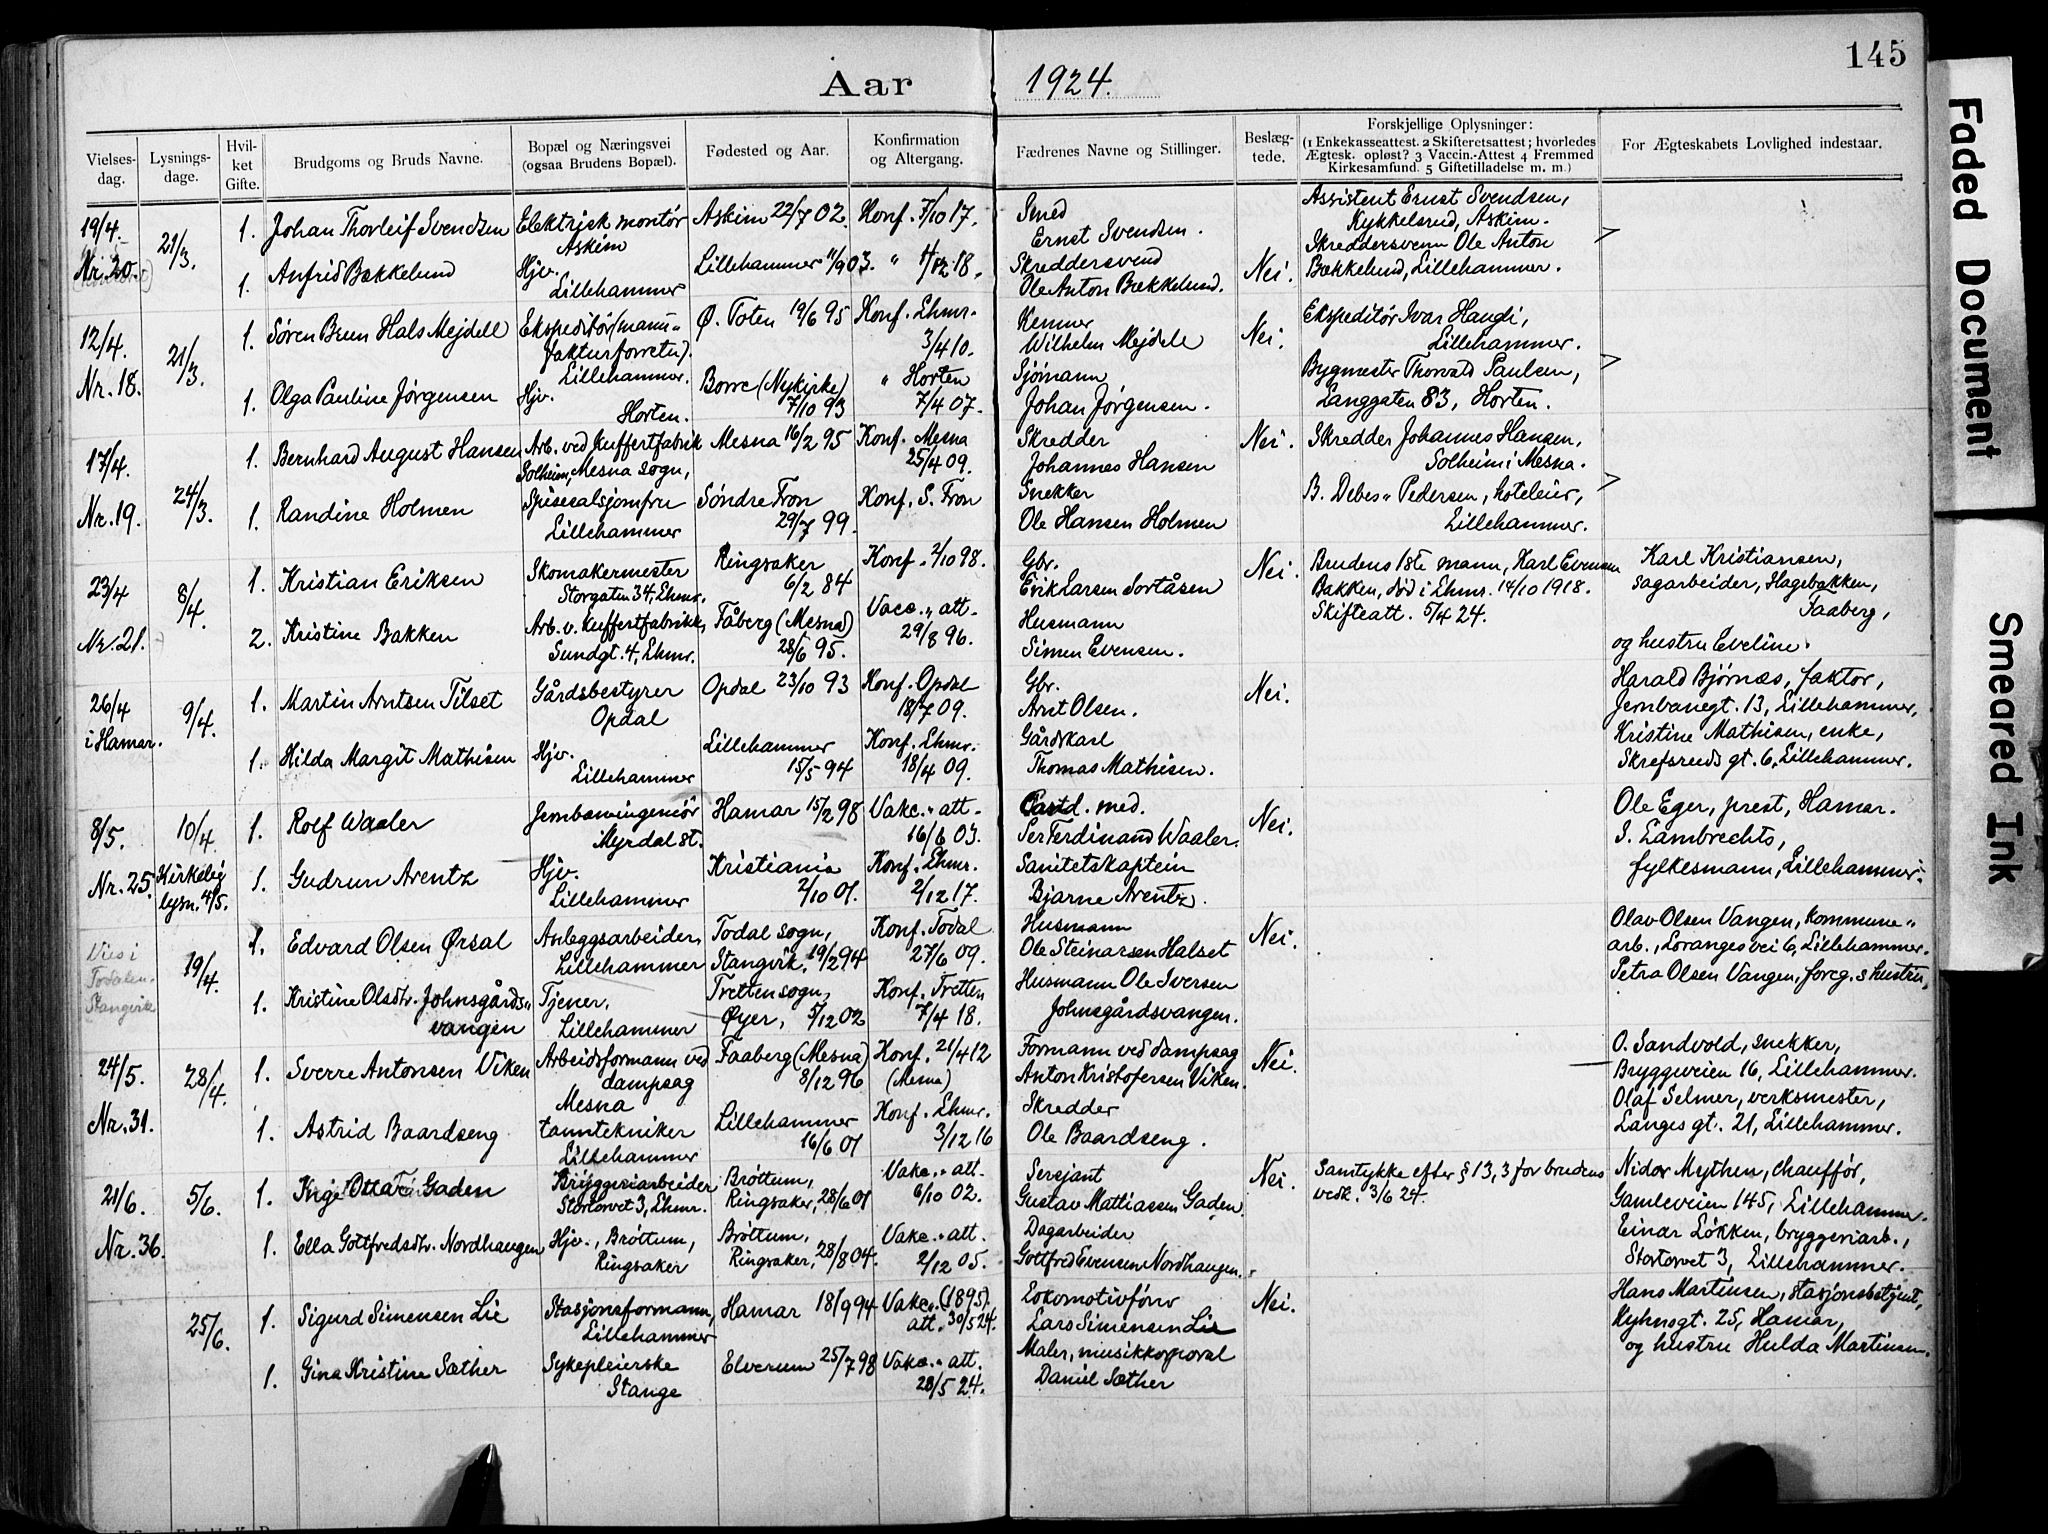 145
Aar 1924.
Vielses-dag. Lysnings-dage. Hvil-ket Gifte. Brudgoms og Bruds Navne. Bopæl og Næringsvei (ogsaa Brudens Bopæl). Fødested og Aar. Konfirmation og Altergang. Fædrenes Navne og Stillinger. Beslæg-tede. Forskjellige Oplysninger: (1 Enkekasseattest. 2 Skifteretsattest; hvorledes Ægtesk. opløst? 3 Vaccin.-Attest 4 Fremmed Kirkesamfund. 5 Giftetilladelse m. m.) For Ægteskabets Lovlighed indestaar.
19/4. 21/3. 1. Johan Thorleif Svendsen Elektrisk montör Askim Askim 22/7 02. Konf. 7/10 17. Smed Ernst Svendsen. Assistent Ernst Svendsen, Kykkelsrud, Askim.
Nr. 20. 1. Anfrid Bækkelund Hjv. Lillehammer Lillehammer 11/9 03. " 1/12 18. Skreddersvend Ole Anton Bækkelund. Nei. Skreddersvenn Ole Anton Bækkelund, Lillehammer.
12/4. 21/3. 1. Søren Brun Hals Mejdell Ekspeditör (manu-fakturforretn). Lillehammer. Ø. Toten 19/6 95 Konf. Lhmr. 3/4 10. Kemner Wilhelm Mejdell Nei. Ekspeditör Ivar Haugli, Lillehammer.
Nr. 18. 1. Olga Pauline Jørgensen Hjv. Horten. Borre (Nykirke) 7/10 93 " Horten 7/4 07. Sjömann Johan Jørgensen. Bygmester Thorvald Paulsen, Langgaten 83, Horten.
17/4. 24/3. 1. Bernhard August Hansen Arb. ved Kuffertfabrik Solheim, Mesna sogn, Mesna 16/2 95 Konf. Mesna 25/4 09. Skredder Johannes Hansen Nei. Skredder Johannes Hansen, Solheim i Mesna.
Nr. 19. 1. Randine Holmen Spisesalsjomfru Lillehammer Söndre Fron 29/7 99. Konf. S. Fron Snekker Ole Hansen Holmen B. Debes-Pedersen, hoteleier, Lillehammer.
23/4 8/4. 1. Kristian Eriksen Skomakermester Storgaten 34, Lhmr. Ringsaker 6/2 84 Konf. 2/10 98. Gbr. Erik Larsen Sortåsen Nei. Brudens 1ste mann, Karl Evensen Bakken, död i Lhmr. 14/10 1918. Skifteatt. 5/4 24. Karl Kristiansen, sagarbeider, Hagebakken, Faaberg,
Nr. 21. 2. Kristine Bakken Arb. v. Kuffertfabrikk, Sundgt. 4, Lhmr. Fåberg (Mesna) 28/6 95. Vacc.-att. 29/8 96. Husmann Simen Evensen. og hustru Eveline.
26/4 i Hamar. 9/4. 1. Martin Arntsen Tilset Gårdsbestyrer Opdal Opdal 23/10 93 Konf. Opdal 18/7 09. Gbr. Arnt Olsen. Nei. Harald Bjørnæs, faktor, Jernbanegt. 13, Lillehammer,
1. Hilda Margit Mathisen Hjv. Lillehammer Lillehammer 15/5 94 Konf. Lhmr. 18/4 09. Gårdskarl Thomas Mathisen. Kristine Mathisen, enke, Skrefsruds gt. 6, Lillehammer.
8/5. 10/4. 1. Rolf Waaler Jernbaneingeniör Myrdal st. Hamar 15/2 98 Vakc.-att. 16/6 03. Cand. med. Per Ferdinand Waaler. Nei. Ole Eger, prest, Hamar.
Nr. 25. Kirkelig lysn. 4/5. 1. Gudrun Arentz Hjv. Lillehammer Kristiania 2/10 01. Konf. Lhmr. 2/12 17. Sanitetskaptein Bjarne Arentz. S. Lambrechts, fylkesmann, Lillehammer.
Vies i Todalen Stangvik 19/4. 1. Edvard Olsen Ørsal Anleggsarbeider, Lillehammer Todal sogn, Stangvik, 19/2 94 Konf. Todal 27/6 09. Husmann Ole Steinarsen Halset Nei. Olav Olsen Vangen, kommune-arb., Loranges vei 6, Lillehammer.
1. Kristine Olsdtr. Johnsgårds-vangen Tjener, Lillehammer Tretten sogn, Øyer, 5/12 02 Konf. Tretten 7/4 18. Husmann Ole Iversen Johnsgårdsvangen. Petra Olsen Vangen, foreg.s hustru,
24/5. 28/4. 1. Sverre Antonsen Viken Arbeidsformann ved dampsag Mesna Faaberg (Mesna) 8/12 96 Konf. 21/4 12 (Mesna) Formann ved dampsag Anton Kristofersen Viken. Nei. O. Sandvold, snekker, Bryggeveien 16, Lillehammer.
Nr. 31. 1. Astrid Baardseng tanntekniker Lillehammer Lillehammer 16/6 01 Konf. Lhmr. 3/12 16 Skredder Ole Baardseng. Olaf Selmer, verksmester, Langes gt. 21, Lillehammer.
21/6. 5/6. 1. Otto Gaden Bryggeriarbeider Stortorvet 3, Lhmr. Bröttum, Ringsaker, 28/6 01 Vakc.-att. 6/10 02. Sersjant Gustav Mattiassen Gaden. Nei. Samtykke efter § 13, 3 for brudens vedk. 3/6 24. Nidar Mythen, chauffør, Gamleveien 145, Lillehammer.
Nr. 36. 1. Ella Gottfredsdtr. Nordhaugen Hjv., Bröttum, Ringsaker Bröttum, Ringsaker, 28/8 04. Vakc.-att. 2/12 05. Dagarbeider Gottfred Evensen Nordhaugen. Einar Løkken, bryggeriarb., Stortorvet 3, Lillehammer.
25/6. 1. Sigurd Simensen Lie Stasjonsformann, Lillehammer Hamar 18/9 94 Vakc. (1895) att. 30/5 24. Lokomotivförer Lars Simensen Lie Nei. Hans Martinsen, stasjonsbetjent, Kyhnsgt. 25, Hamar,
1. Gina Kristine Sæther Sykepleierske Stange Elverum 25/7 98 Vakc.-att. 28/5 24. Maler, musikkorporal Daniel Sæther og hustru Hulda Martinsen.
Faded Document
Smeared Ink